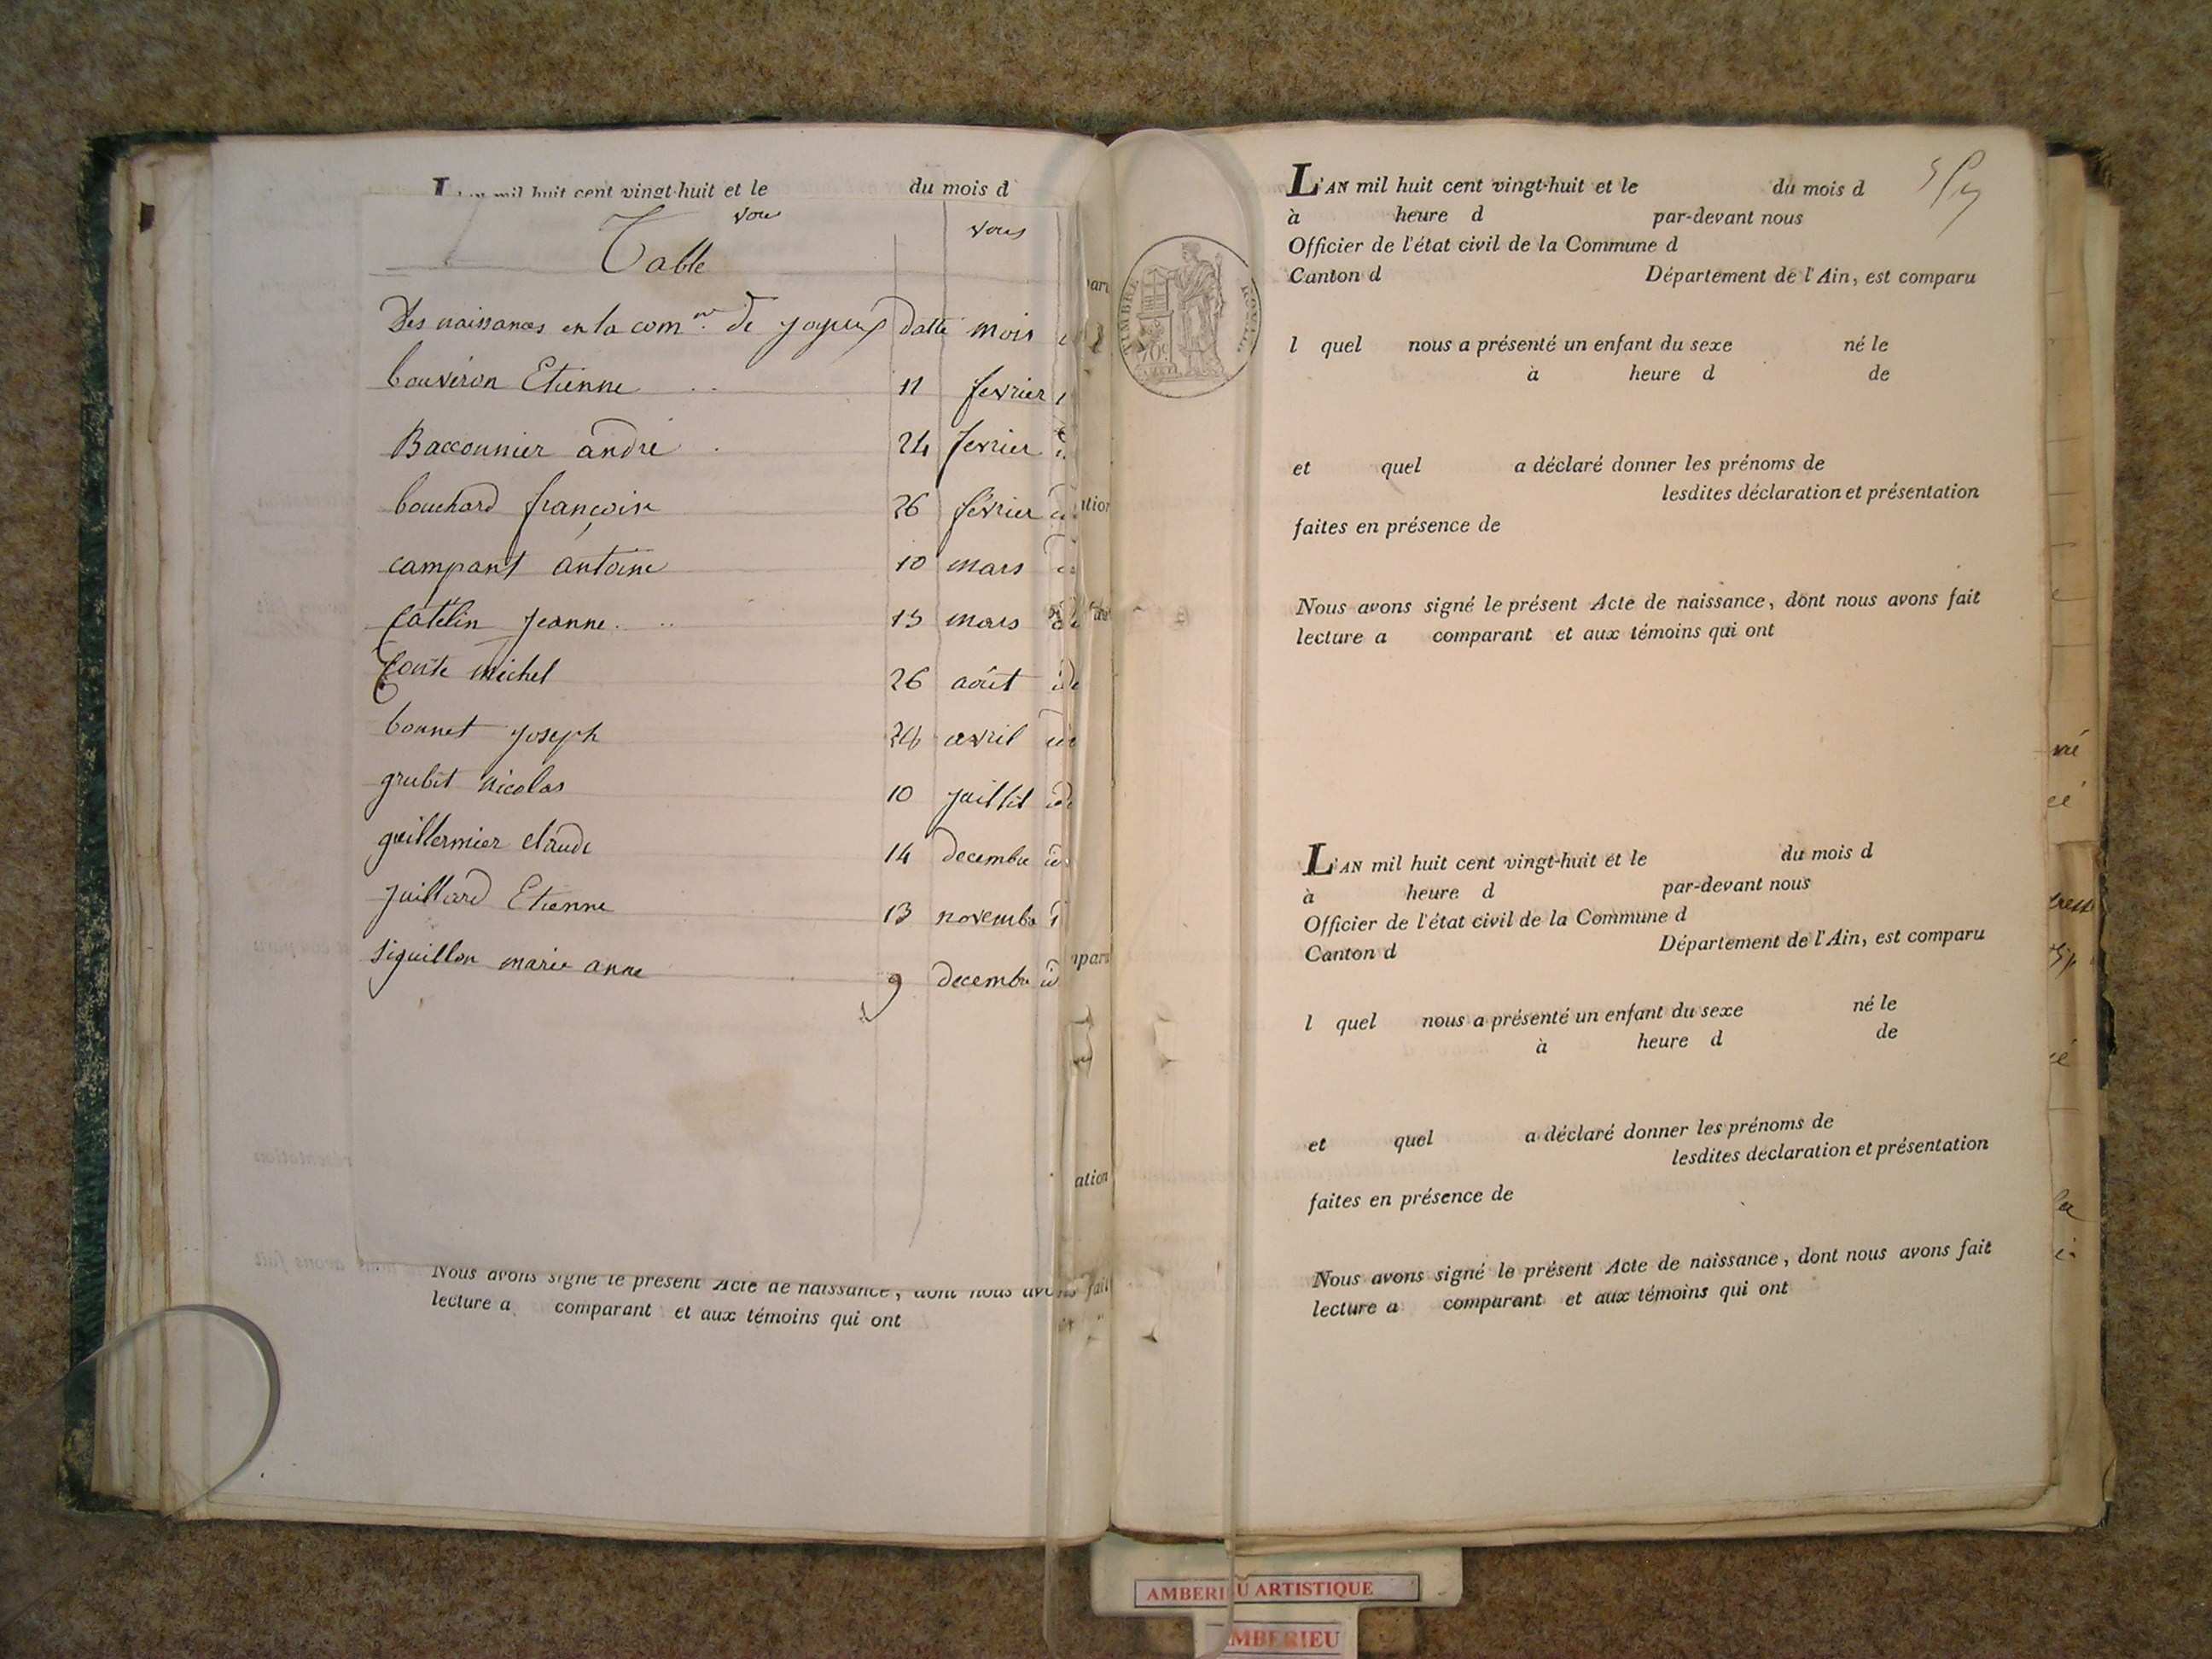 mil huit cent vingt-huit et le du mois d
vous vous
Table
Des naissances en la com.ne de joyeux datte mois
bouviron Etienne 11 fevrier
Bacconnier andré 24 fevrier
bouchard françoise 26 février
campant antoine 10 mars
Catelin Jeanne 13 mars
Conte michel 26 août
bonnet joseph avril
grubit nicolas 10 juillet
guillermier claude 14 decembre
juillard Etienne 13 novembre
Siguillon marie anne 9 decembre
Nous avons signé le présent Acte de naissance, dont nous avons fait
lecture a comparant et aux témoins qui ont
ation
L'AN mil huit cent vingt-huit et le du mois d
à heure d par-devant nous
Officier de l'état civil de la Commune d
Canton d Département de l'Ain, est comparu
TIMBRE ROYAL
l quel nous a présenté un enfant du sexe né le
à heure d de
et quel a déclaré donner les prénoms de
lesdites déclaration et présentation
faites en présence de
Nous avons signé le présent Acte de naissance, dont nous avons fait
lecture a comparant et aux témoins qui ont
L'AN mil huit cent vingt-huit et le du mois d
à heure d par-devant nous
Officier de l'état civil de la Commune d
Canton d Département de l'Ain, est comparu
l quel nous a présenté un enfant du sexe né le
à heure d de
et quel a déclaré donner les prénoms de
lesdites déclaration et présentation
faites en présence de
Nous avons signé le présent Acte de naissance, dont nous avons fait
lecture a comparant et aux témoins qui ont
AMBERIEU ARTISTIQUE
AMBERIEU